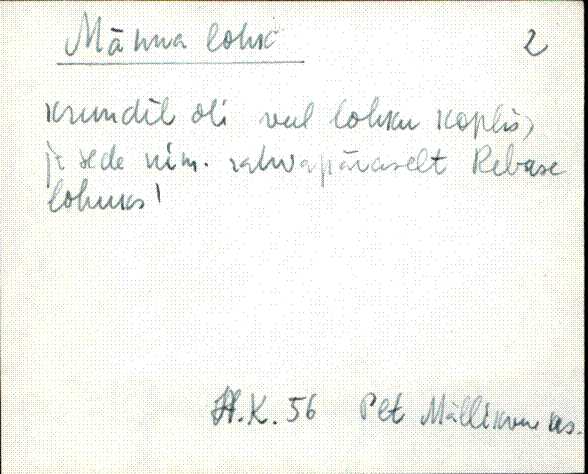 Männa lohk
2
krundil oli veel lohku koplis,
ja seda nim. rahvapäraselt Rebase
lohuks!
H.K. 56 Plt Mällikvere as.